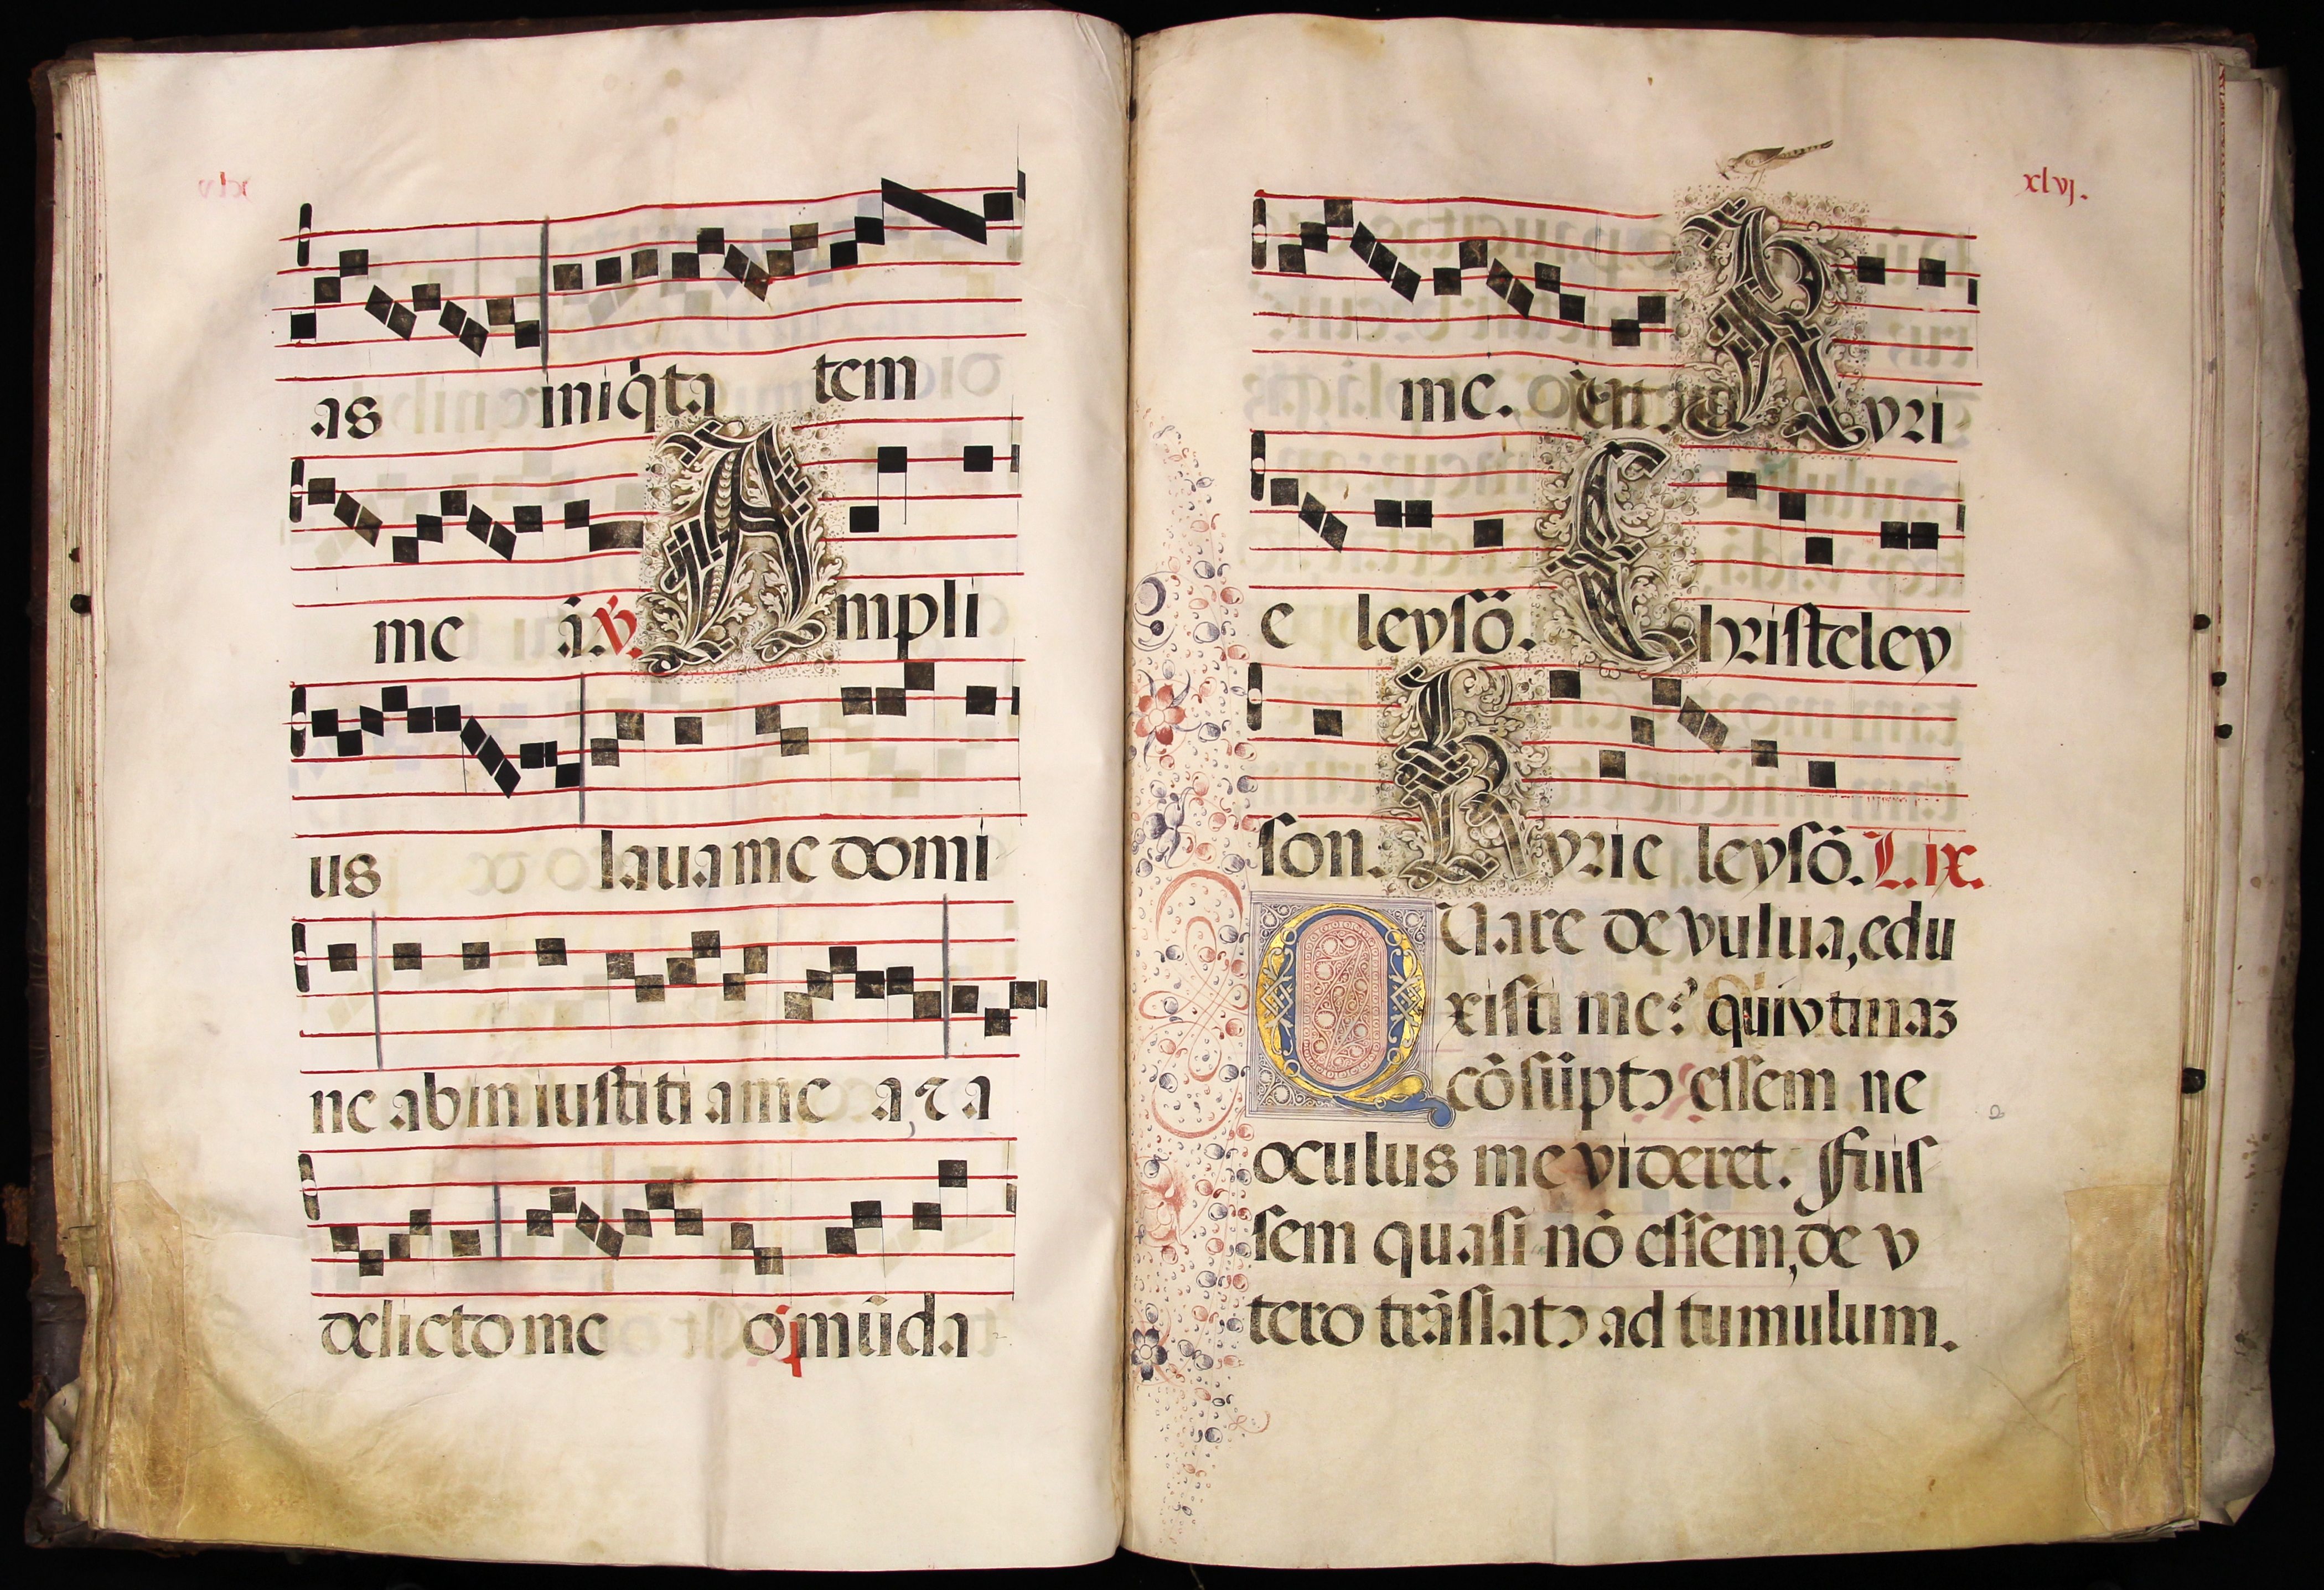 as iniq̇ta tem
me ā. ꝟ. Ampli
us laua me domi
ne ab in iustiti a me a, ⁊ a
delicto me o mūda
xlvj.
me. Kyri
e leysō. Christeley
son. Kyrie leysō. L. ix.
QUare de vulua, edu
xisti me? qui vtinaz
cōsūptꝰ essem ne
oculus me videret. Fuis
sem quasi nō essem, de v
tero trāslatꝰ ad tumulum.